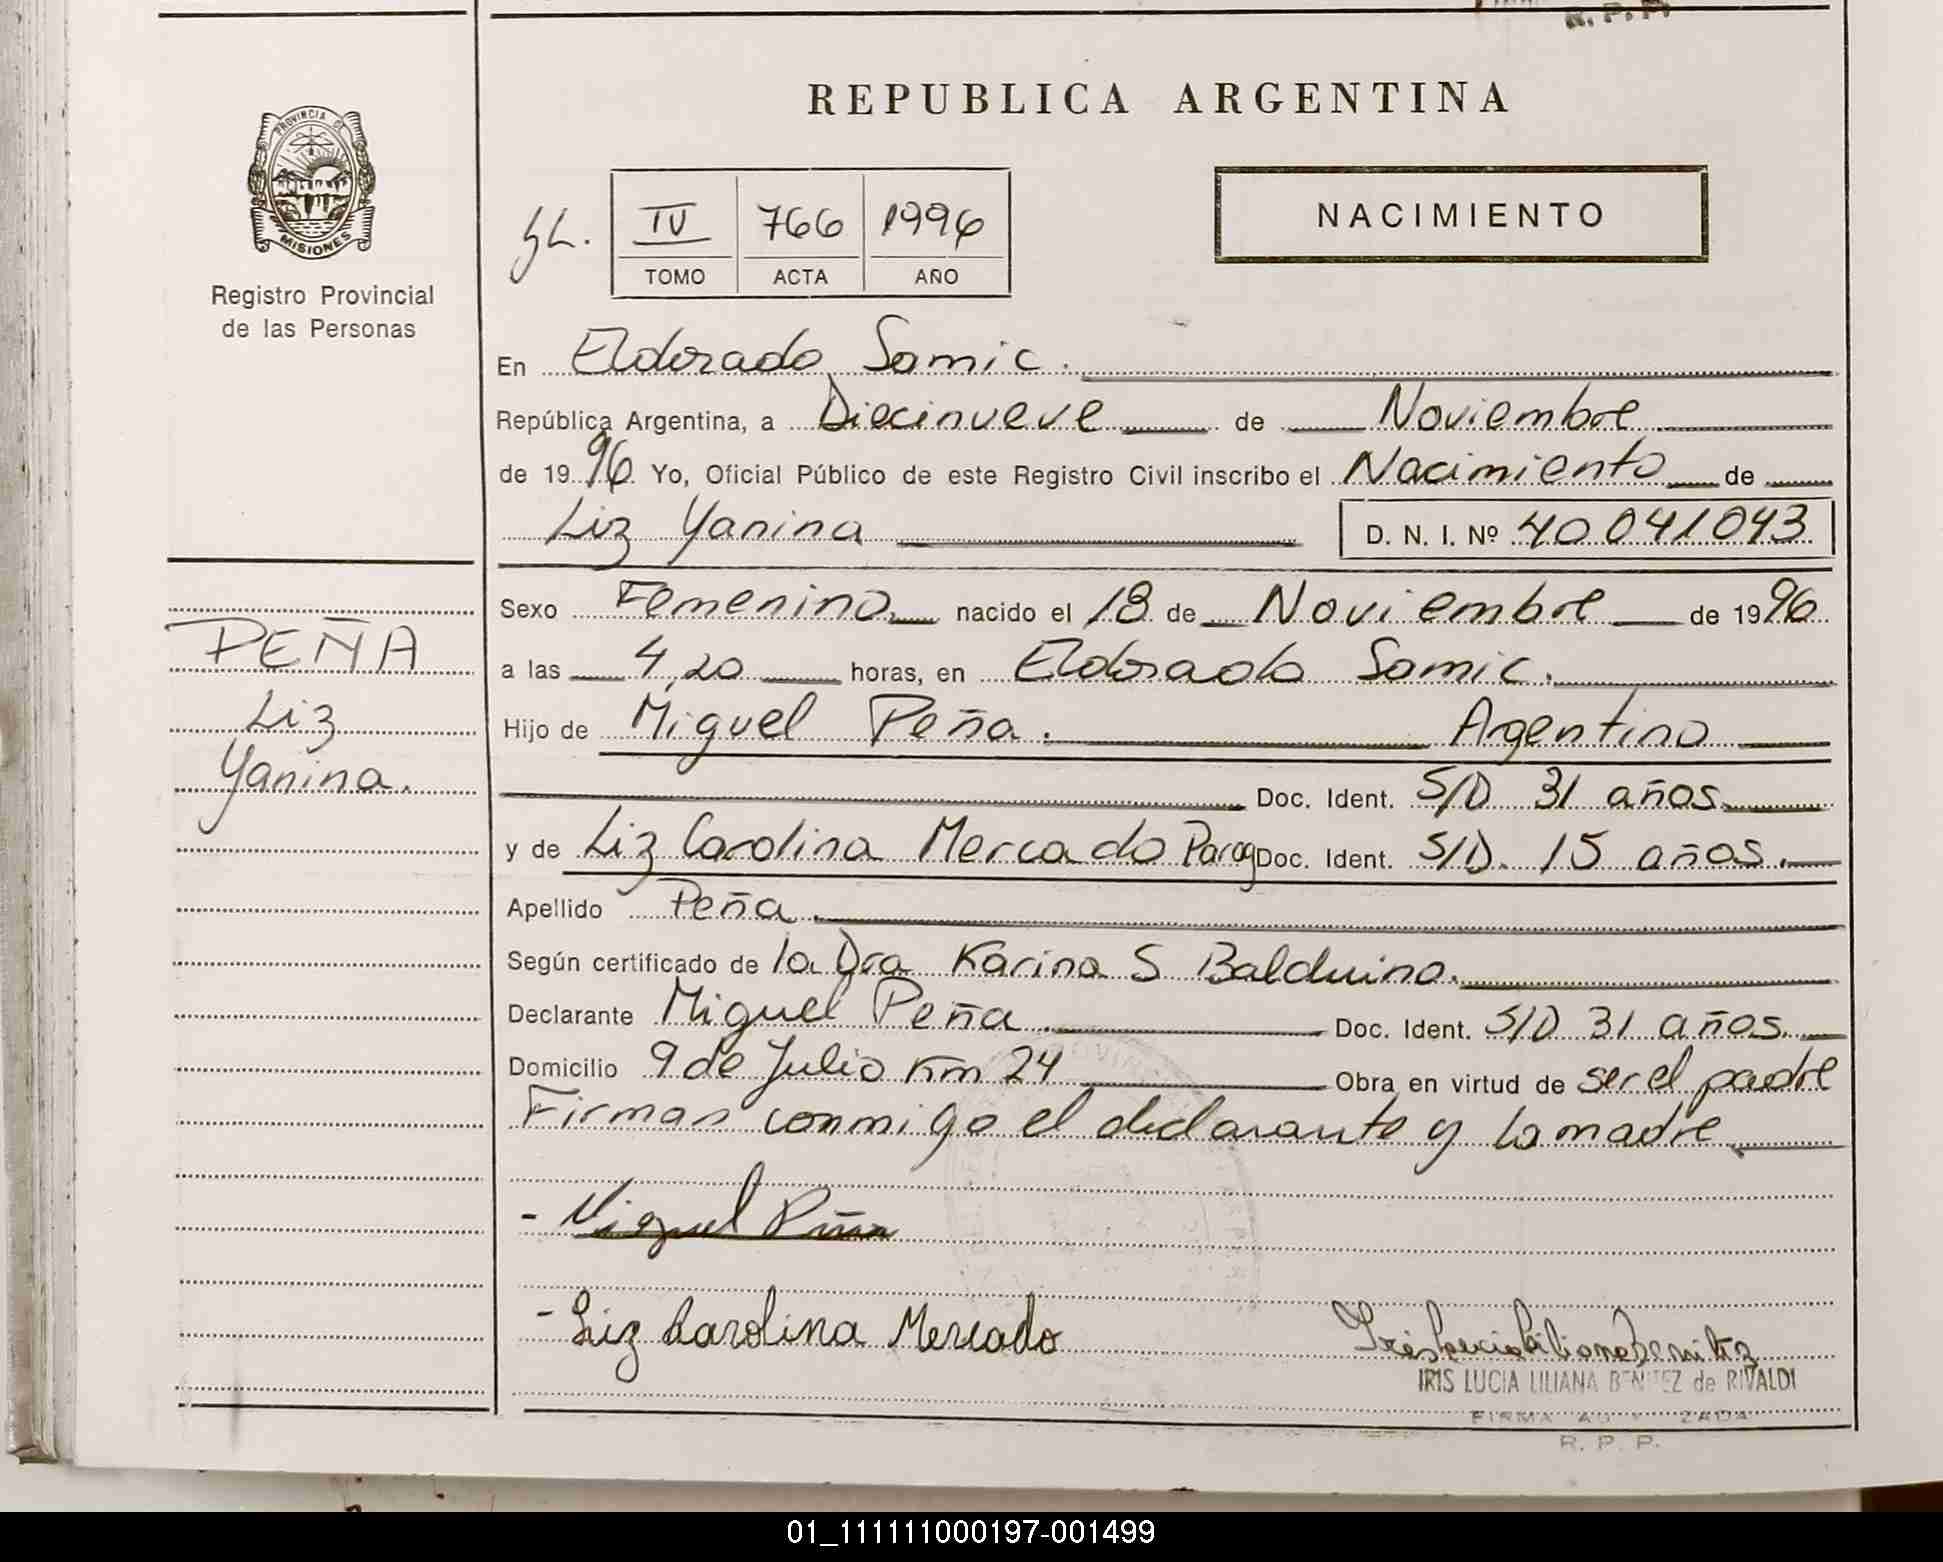 R. P. P.
PROVINCIA DE
MISIONES
Registro Provincial
de las Personas
REPUBLICA ARGENTINA
IV 766 1996
TOMO ACTA AÑO
NACIMIENTO
En Eldorado Samic.
República Argentina, a Diecinueve de Noviembre
de 1996 Yo, Oficial Público de este Registro Civil inscribo el Nacimiento de
Liz Yanina D. N. I. Nº 40041043
Sexo Femenino nacido el 18 de Noviembre de 1996
a las 4,20 horas, en Eldorado Samic.
Hijo de Miguel Peña. Argentino
Doc. Ident. S/D 31 años
y de Liz Carolina Mercado Parag Doc. Ident. S/D. 15 años.
Apellido Peña
Según certificado de la Dra Karina S Balduino.
Declarante Miguel Peña Doc. Ident. S/D 31 años
Domicilio 9 de Julio Km 24 Obra en virtud de ser el padre
Firman conmigo el declarante y la madre
- Miguel Peña
- Liz Carolina Mercado
Iris Lucia Liliana Benitez
IRIS LUCIA LILIANA BENITEZ de RIVALDI
R. P. P.
PEÑA
Liz
Yanina.
01_111111000197-001499